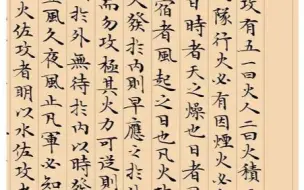 攻有五一曰火人二曰火積
隊行火必有因煙火必
日時者天之燥也日者
宿者風起之日也凡火攻
火發於內則早應之於
而勿攻極其火力可從則
於外無待於內以時發
風久夜風止凡軍必知
火佐攻者明以水佐攻